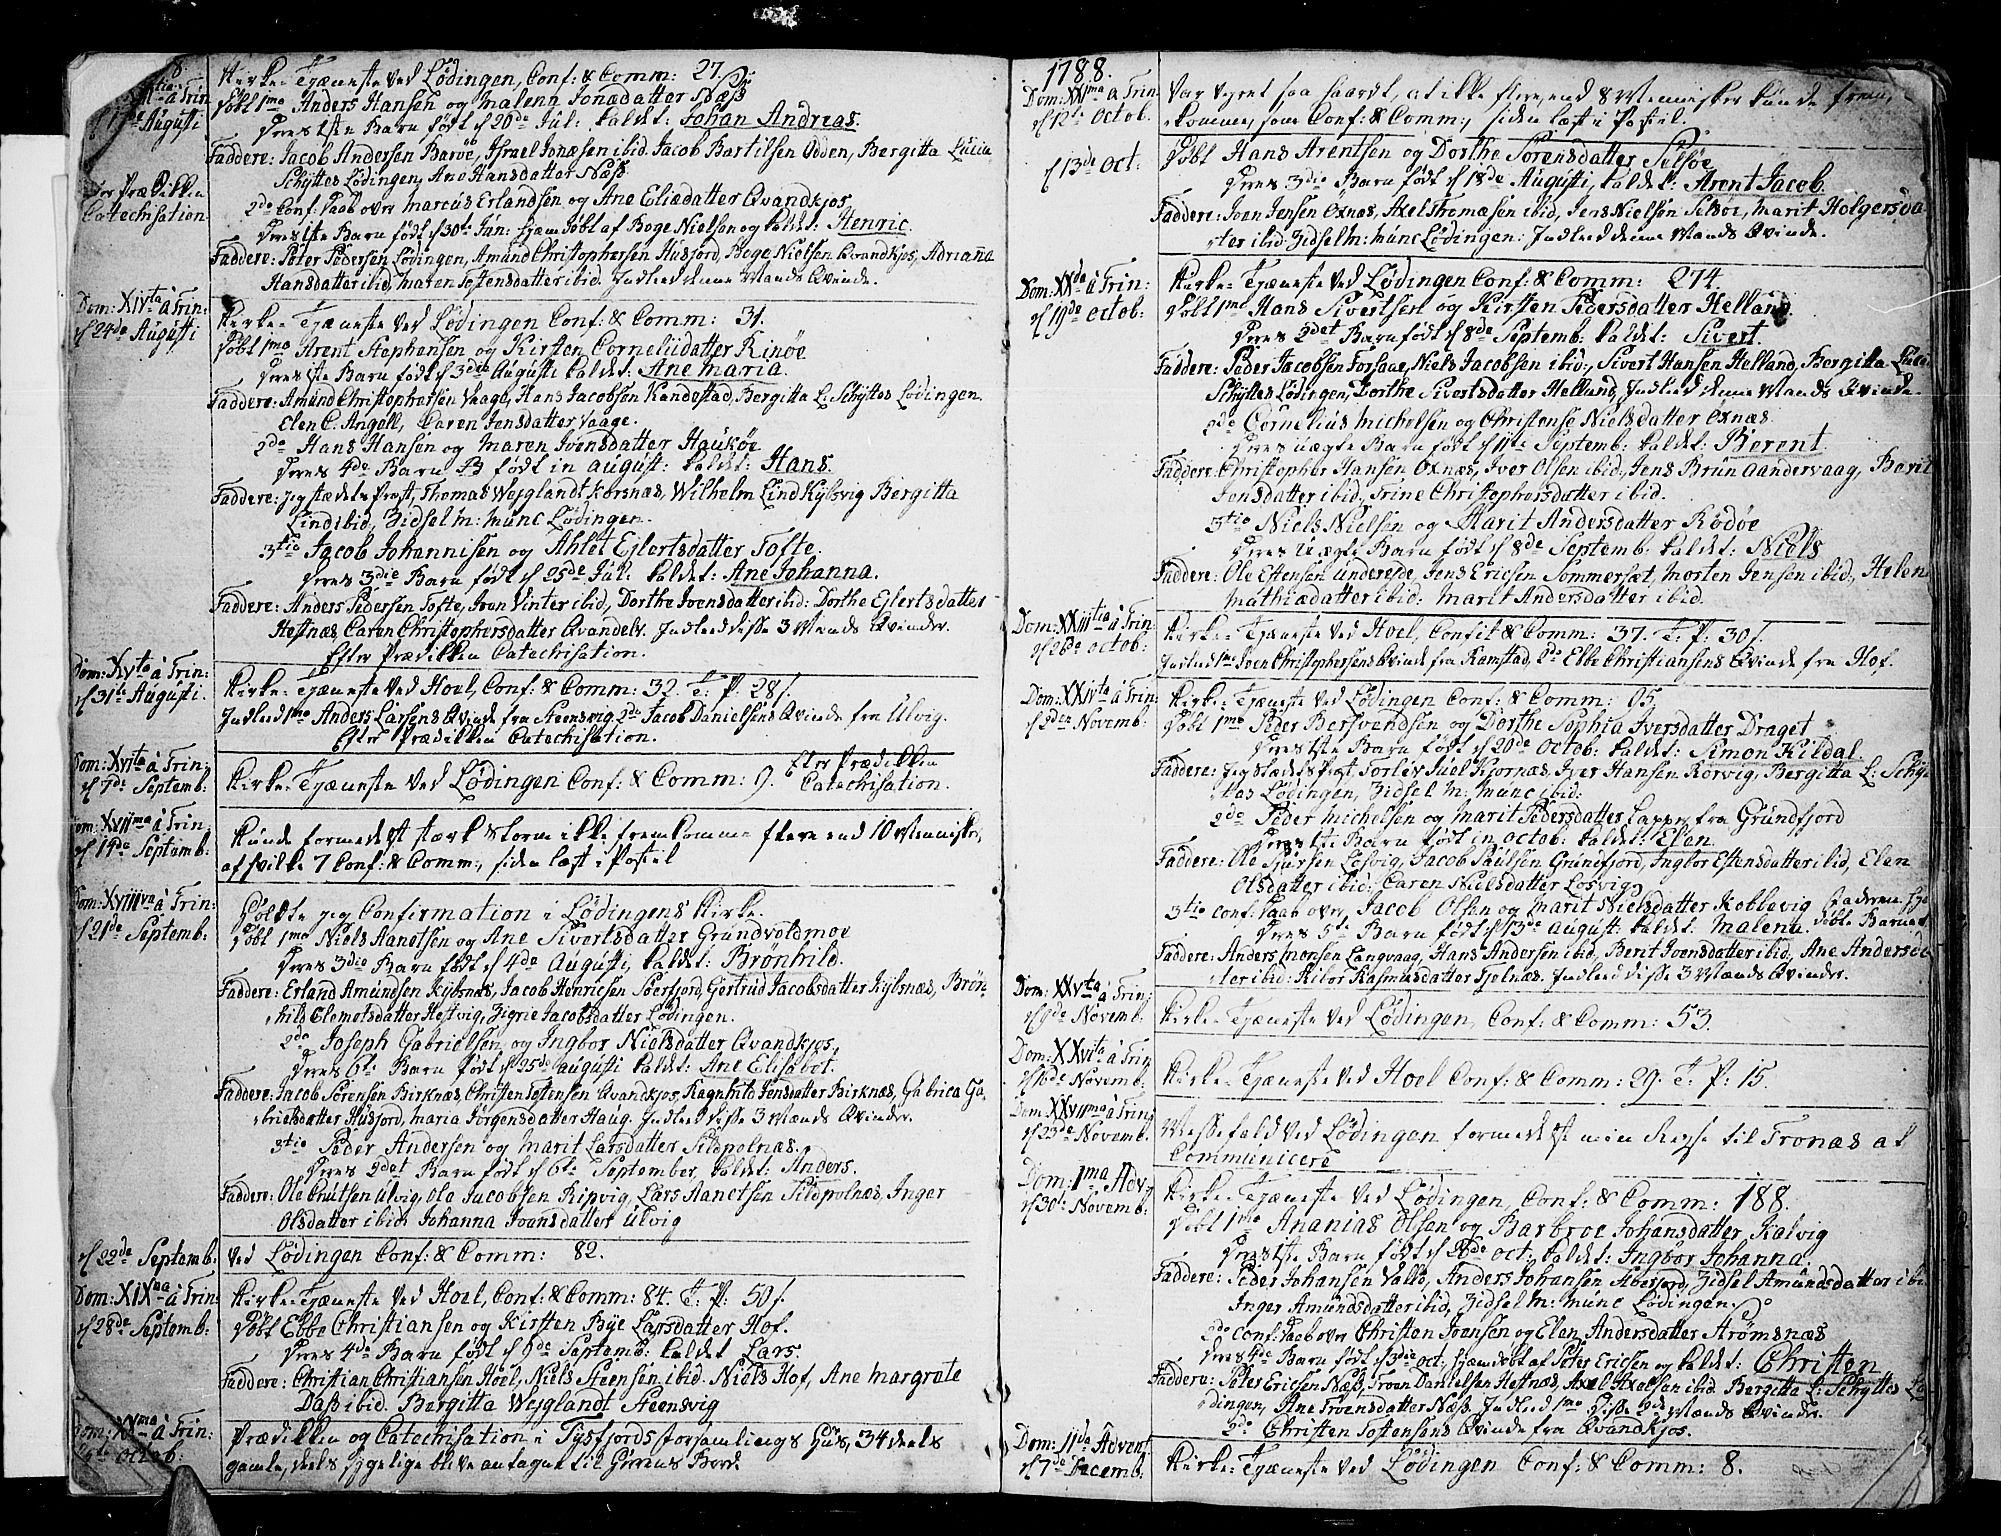 Kirke-Tjæneste ved Lødingen, Conf: & Comm: 27.
Døbt 1mo Anders Hansen og Malenn Jonadatter Næss
Deres 1ste Barn født d 20de Jul: kaldet: Johan Andreas.
Faddere: Jacob Andersen Barøe, Israel Jonæsen ibid. Jacob Bartilsen Odden, Bergitta Lucia
Schyttes Lødingen, Ane Hansdatter Næss.
2do Conf: Daab over Marcus Erlandsen og Ane Eliædatter Qvandkjos
Deres 1ste Barn født d 30te Jun: hjemedøbt af Boge Nielsen og kaldet: Henric.
Faddere: Peter Pedersen Lødingen, Amund Christophersen Husjord, Boge Nielsen Qvandkjos, Adriana
Hansdatter ibid, Maren Tostensdatter ibid. Indleed denne Mands Qvinde.
for Prædikken
Catechisation
Dom: XIVta à Trin:
d 24de Augusti
Kirke-Tjæneste ved Lødingen Conf: & Comm: 31.
Døbt 1mo Arent Stephensen og Kirsten Corneliidatter Rinøe
Deres 1ste Barn født d 3die Augusti kaldet: Ane Maria.
Faddere: Amund Christophersen Vaage, Hans Jacobsen Kandestad, Bergitta L: Schyttes Lødingen
Elen C. Angell, Caren Jensdatter Vaage.
2do Hans Hansen og Maren Ivensdatter Haukøe
Deres 4de Barn født in August: kaldet: Hans.
Faddere: Jeg stædets Præst, Thomas Wejglandt Korsnæs, Wilhelm Lind Kjøsvig Bergitta
Lind ibid, Zidsel M: Munc Lødingen.
3tio Jacob Johannisen og Ahlet Ejlertsdatter Tofte.
Deres 3die Barn født d 25de Jul: kaldet: Ane Johanna.
Faddere: Anders Pedersen Tofte, Iven Vinter ibid, Dorthe Ivensdatter ibid: Dorthe Ejlertsdatter
Hestnæs Caren Christophersdatter Qvandelv. Indleed disse 3 Mænds Qvinder.
Efter Prædikken Catechisation.
Dom: XVta à Trin:
d 31te Augusti.
Kirke-Tjæneste ved Hoel, Conf: & Comm: 32. T: P: 28 s.
Indleed 1mo Anders Larsens Qvinde fra Steensvig 2do Jacob Danielsens Qvinde fra Ulvig.
Efter Prædikken Catechisation.
Dom: XVIta à Trin:
d 7de Septemb:
Kirke-Tjæneste ved Lødingen Conf: & Comm: 9. Efter Prædikken
Catechisation.
Dom: XVIIma à Trin
d 14de Septemb:
Kunde formedelst stærk Storm ikke fremkomme flere end 10 Mennisker,
af hvilke 7 Conf: & Comm:, siden læst i Postil
Dom: XVIIIva à Trin:
d 21de Septemb:
Holdte jeg Confirmation i Lødingens Kirke.
Døbt 1mo Niels Aanetsen og Ane Sivertsdatter Grundvoldmoe
Deres 3die Barn født d 4de Augusti, kaldet: Brønhild.
Faddere: Erland Amundsen Kjøsnæs, Jacob Henricsen Søerfjord, Gertrud Jacobsdatter Kjøsnæs, Brøn-
hild Elemetsdatter Hestvig, Zigrie Jacobsdatter Lødingen.
2do Joseph Gabrielsen og Ingbor Nielsdatter Qvandkjos,
Deres 6te Barn født d 25de Augusti kaldet: Ane Elisabet.
Faddere: Jacob Sørensen Birknæs, Christen Tostensen Qvandkjos, Ragnhild Jensdatter Birknæs, Gabrica Ga-
brielsdatter Husjord, Maria Jørgensdatter Haug. Indleed disse 3 Mænds Qvinder.
3tio Peder Andersen og Marit Larsdatter Sildpolnæs.
Deres 2det Barn født d 6te September, kaldet: Anders.
Faddere: Ole Cnutsen Ulvig, Ole Jacobsen Ripvig, Lars Aanetsen Sildpolnæs, Inger
Olsdatter ibid, Johanna Ivensdatter Ulvig
d 22de Septemb:
Ved Lødingen Conf: & Comm: 82.
Dom: XIXna à Trin:
d 28de Septemb:
Kirke-Tjæneste ved Hoel, Conf: & Comm: 84. T: P: 50 s.
Døbt Ebbe Christiansen og Kirsten Bye Larsdatter Hof.
Deres 4de Barn født d 9de Septemb: kaldet Lars.
Faddere: Christian Christiansen Hoel, Niels Steensen ibid: Niels Hof, Ane Margrete
Dass ibid. Bergitta Wejglandt Steensvig
Dom: XXma à Trin:
octob:
Prædikken og Catechisation i Tysfjords forsamlings Huus, 34 deels
gamle, deels sygelige bleve antagne til Herrens Bord.
1788.
Dom: XXIma à Trin
d 12te Octob.
Var Vejret saa haardt, at ikke flere, end 8 Mennisker kunde frem-
komme, som Conf: & Comm:, siden læst i Postil.
d 13de Oct:
Døbt Hans Arentsen og Dorthe Sørensdatter Selsøe
Deres 3die Barn født d 18de Augusti, kaldet: Arent Jacob.
Faddere: Iven Jensen Oxnæs, Axel Thomæsen ibid, Jens Nielsen Selsøe, Marit Holgersda-
tter ibid: Zidsel M: Munc Lødingen: Indleed denne Mands Qvinde.
d 19de Octob:
Kirke-Tjæneste ved Lødingen Conf: & Comm: 274.
Døbt 1mo Hans Sivertsen og Kirsten Pedersdatter Helland.
Deres 2det Barn født d 8de Septemb: kaldet: Sivert.
Faddere: Peder Jacobsen Forsaae, Niels Jacobsen ibid:, Sivert Hansen Helland, Bergitta Lucia
Schyttes Lødingen, Dorthe Sivertsdatter Helland, Indleed denne Mands Qvinde.
2do Cornelius Michelsen og Christense Nielsdatter Oxnæs
Deres uægte Barn født d 11te Septemb: kaldet: Berent.
Faddere: Christopher Hansen Oxnæs, Iver Olsen ibid, Jens Brun Aandervaag, Barit
Jensdatter ibid, Trine Christophersdatter ibid.
3tio Niels Nielsen og Marit Andersdatter Rødøe
Deres Uægte Barn født d 8de Septemb: kaldet: Niels
Faddere: Ole Estensen, Jens Ericsen Sommersæt, Morten Jensen ibid:, Helen
Mathiædatter ibid: Marit Andersdatter ibid.
Dom: XXIIItia à Trin:
d 26de Octob:
Kirke-Tjæneste ved Hoel, Confit & Comm: 37. T: P: 30 s.
Indleed 1mo Iven Christophersens Qvinde fra Ramstad, 2do Ebbe Christiansens Qvinde fra Hof.
Dom: XXIVta à Trin:
d 2den Novemb:
Kirke-Tjæneste ved Lødingen Conf: & Comm: 65.
Døbt 1mo Peder Bersvendsen og Dorthe Sophia Iversdatter Draget
Deres 1ste Barn født d 20de Octob: kaldet: Simon Kildal.
Faddere: Jeg stædets Præst, Torlev Juel Kjornæs, Iver Hansen Rorvig, Bergitta L: Schyt-
tes Lødingen, Zidsel M: Munc ibid:
2do Peder Michelsen og Marit Pedersdatter Lapper fra Grundfjord
Deres 1ste Barn født in Octob: kaldet: Elen.
Faddere: Ole Siursen Losvig, Jacob Paulsen Grundfjord, Ingbor Estensdatter ibid, Elen
Olsdatter ibid: Caren Nielsdatter Losvig.
3tio Conf: Daab over, Jacob Olsen og Marit Nielsdatter Kobbevig
Deres 5te Barn født d 13de August: kaldet: Malena. døbte Barnet
Faddere: Anders Monsen Langvaag, Hans Andersen ibid, Berit Ivensdatter ibid, Ane Andersda-
tter ibid: Kibor Rasmusdatter Fjolnæs: Indleed disse 3 Mænds Qvinder.
Dom: XXVta à Trin:
d 9de Novemb:
Kirke-Tjæneste ved Lødingen, Conf: & Comm: 53.
Dom: XXVIta à Trin:
d 16de Novemb:
Kirke-Tjæneste ved Hoel Conf: & Comm: 29. T: P: 15.
Dom: XXVIIma à Trin
d 23de Novemb:
Messefald ved Lødingen formedelst min Rejse til Tronæs at
Communicere
Dom: 1ma Adv:
d 30te Novemb:
Kirke-Tjæneste ved Lødingen, Conf: & Comm: 188.
Døbt 1mo Ananias Olsen og Barbroe Johansdatter Kalvig
Deres 1ste Barn født d 26de Oct: kaldet: Ingbor Johanna.
Faddere: Peder Johansen Valle, Anders Johansen Aberjord, Zidsel Amundsdatter ibi
Inger Amundsdatter ibid, Zidsel M: Munc Lødingen.
2do Conf: Daab over Christen Ivensen og Elen Andersdatter Strømsnæs
Deres 4de Barn født d 3die Oct:, hjemdøbt af Peter Ericsen og kaldet: Christen
Faddere: Peter Ericsen Næss, Troen Danielsen Hestnæs, Axel Axelsen ibid. Bergitta L: Schyttes Lø-
dingen, Ane Troensdatter Næss. Indleed 1mo disse 2de Mænds Qvinder.
2do Christen Tostensens Qvinde fra Qvandkjos.
Dom: 11da Advent
d 7de Decemb:
Kirke-Tjæneste ved Lødingen Conf: & Comm: 8.